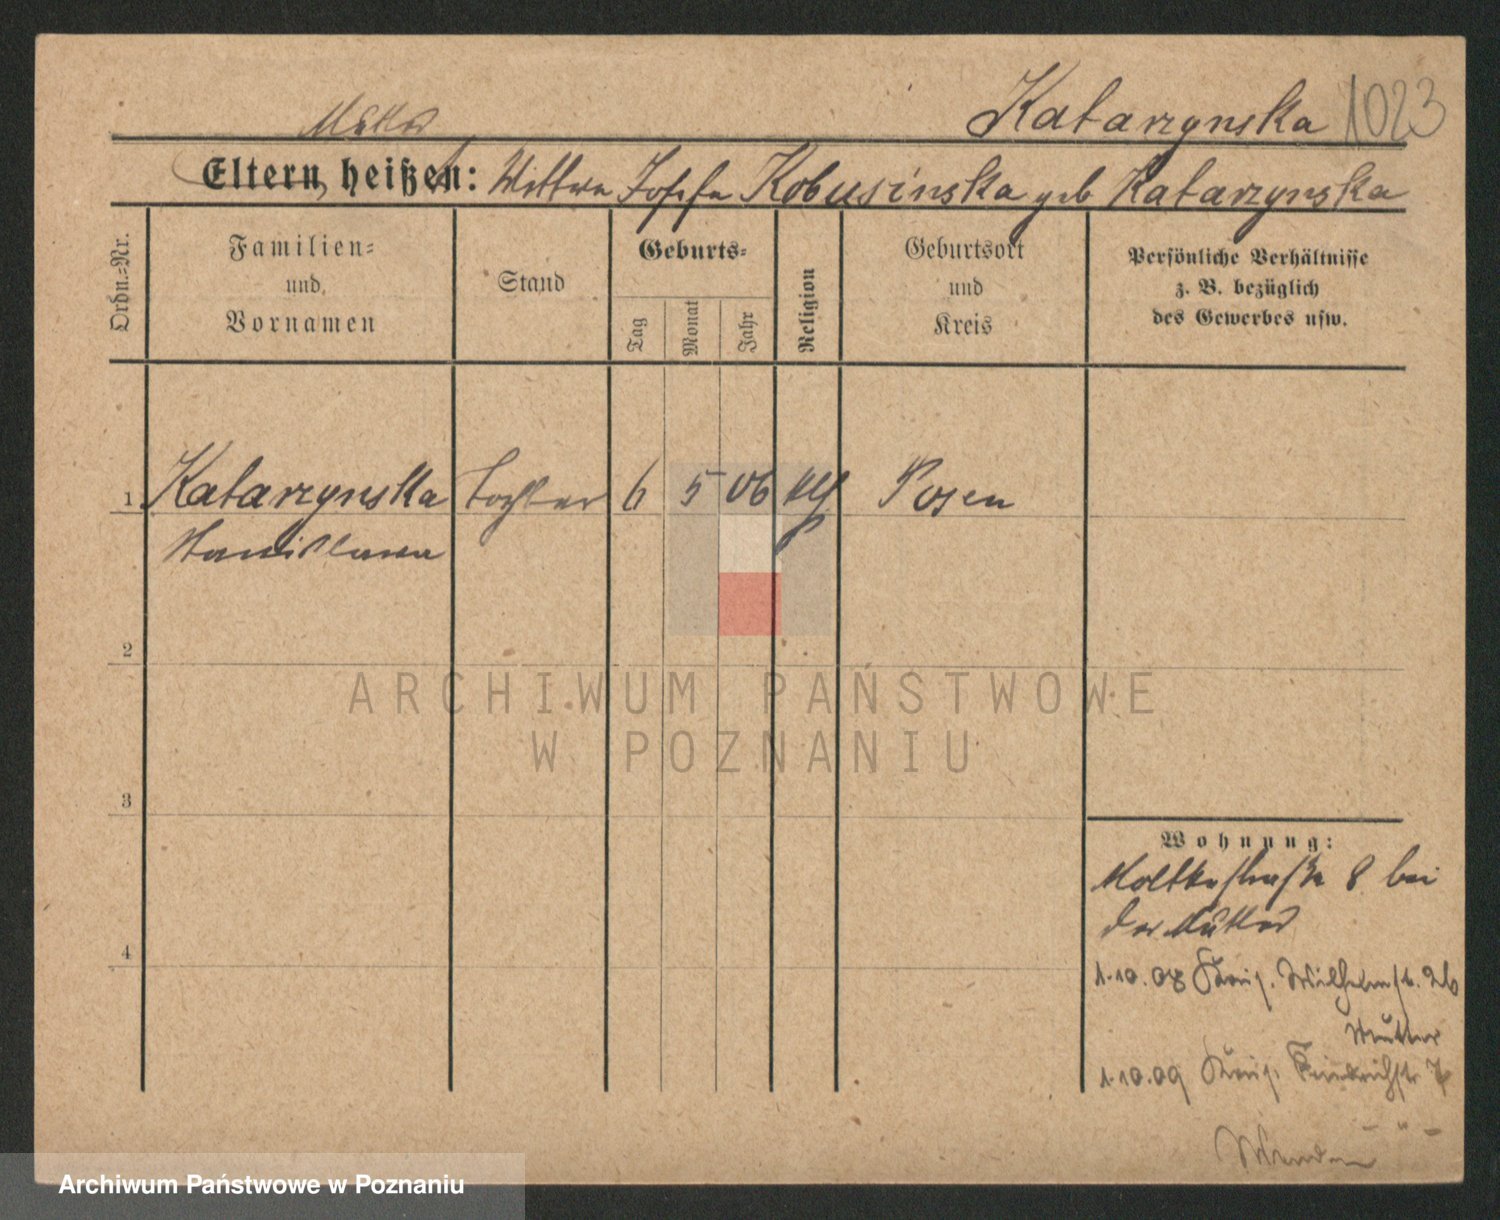 Katarzynska 1023
Mutter
Eltern heißen: Wittwe Josefa Kobusinska geb Katarzynska
Ordn.-Nr.
Familien- und Vornamen
Stand
Geburts-
Tag
Monat
Jahr
Religion
Geburtsort und Kreis
Persönliche Verhältnisse z. B. bezüglich des Gewerbes usw.
1 Katarzynska Tochter 6 5 06 kth Posen
Stanislawa
2
ARCHIWUM PAŃSTWOWE
W POZNANIU
3
Wohnung:
Moltkestraße 8 bei
der Mutter
4
1.10.08 Wilhelmstr. 26
Mutter
1.10.09 Friedrichstr 7
Archiwum Państwowe w Poznaniu